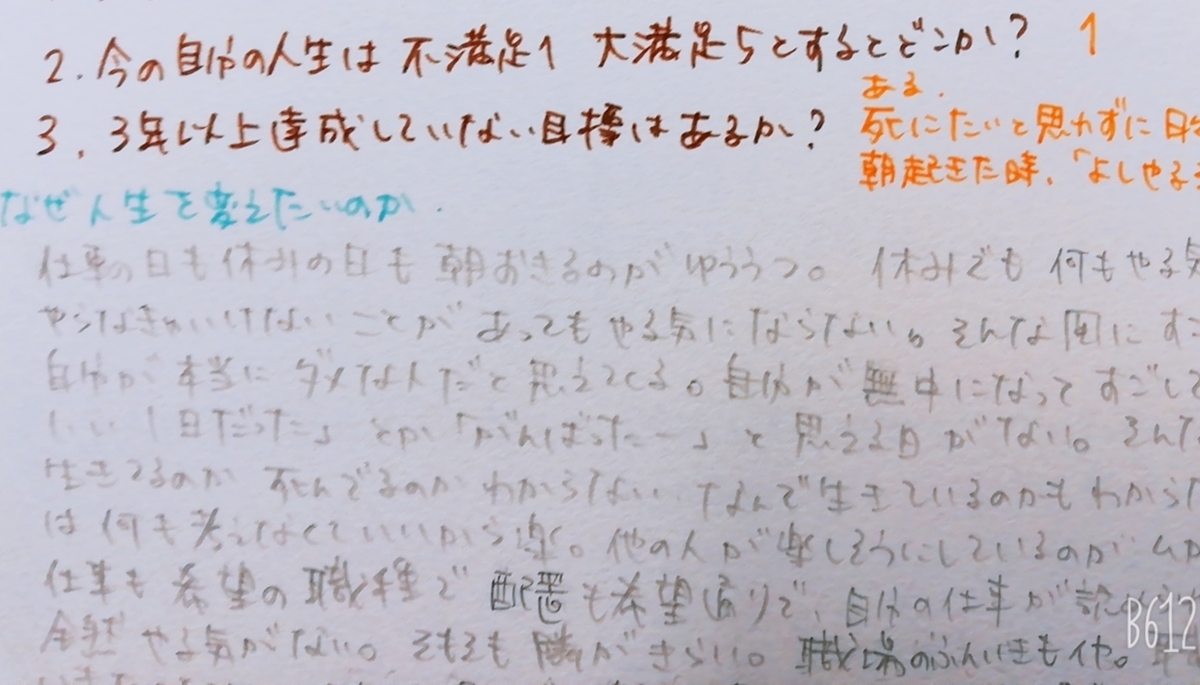 2. 今の自分の人生は 不満足1 大満足5とするとどこか? 1
3. 3年以上達成していない目標はあるか?
ある.
死にたいと思わずに日
朝起きた時、「よしやる
なぜ人生を変えたいのか.
仕事の日も休みの日も朝おきるのがゆううつ。休みでも何もやる気
やらなきゃいけないことがあってもやる気にならない。そんな風にす
自分が本当にダメな人だと思えてくる。自分が無中になってすごして
いい1日だった」とか「がんばったー」と思える日がない。そんな
生きてるのか死んでるのかわからない。なんで生きているのかもわから
は何も考えなくていいから楽。他の人が楽しそうにしているのがムカ
仕事も希望の職種で配置も希望通りで、自分の仕事が
全然やる気がない。そもそも隣がきらい。職場のふんいきもイヤ。
B612